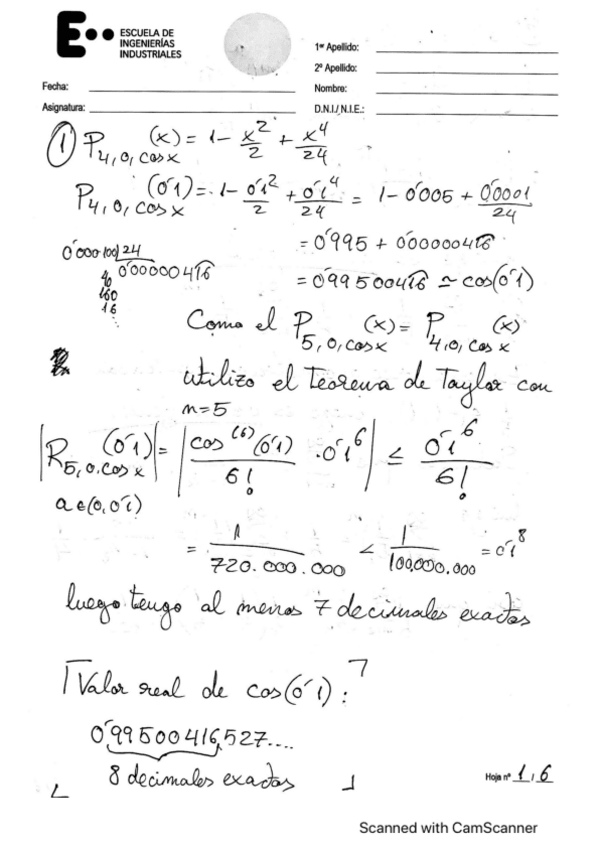 ESCUELA DE
INGENIERÍAS
INDUSTRIALES
1er Apellido:
2º Apellido:
Fecha:
Nombre:
Asignatura:
D.N.I./ N.I.E.:
① P4,0,cosx (x) = 1 - x²/2 + x⁴/24
P4,0,cosx (0'1) = 1 - 0'1²/2 + 0'1⁴/24 = 1 - 0'005 + 0'0001/24
= 0'995 + 0'00000416
0'000100 | 24
0'00000416
40
160
16
= 0'99500416 ≃ cos(0'1)
Como el P5,0,cosx (x) = P4,0,cosx (x)
utilizo el Teorema de Taylor con
n=5
|R5,0,cosx (0'1)| = |cos⁽⁶⁾(0'1)/6! · 0'1⁶| ≤ 0'1⁶/6!
a∈(0,0'1)
= 1/720.000.000 < 1/100,000.000 = 0'1⁸
luego tengo al menos 7 decimales exactos
Valor real de cos(0'1):
0'99500416,527....
8 decimales exactos
Hoja nº 1, 6
Scanned with CamScanner